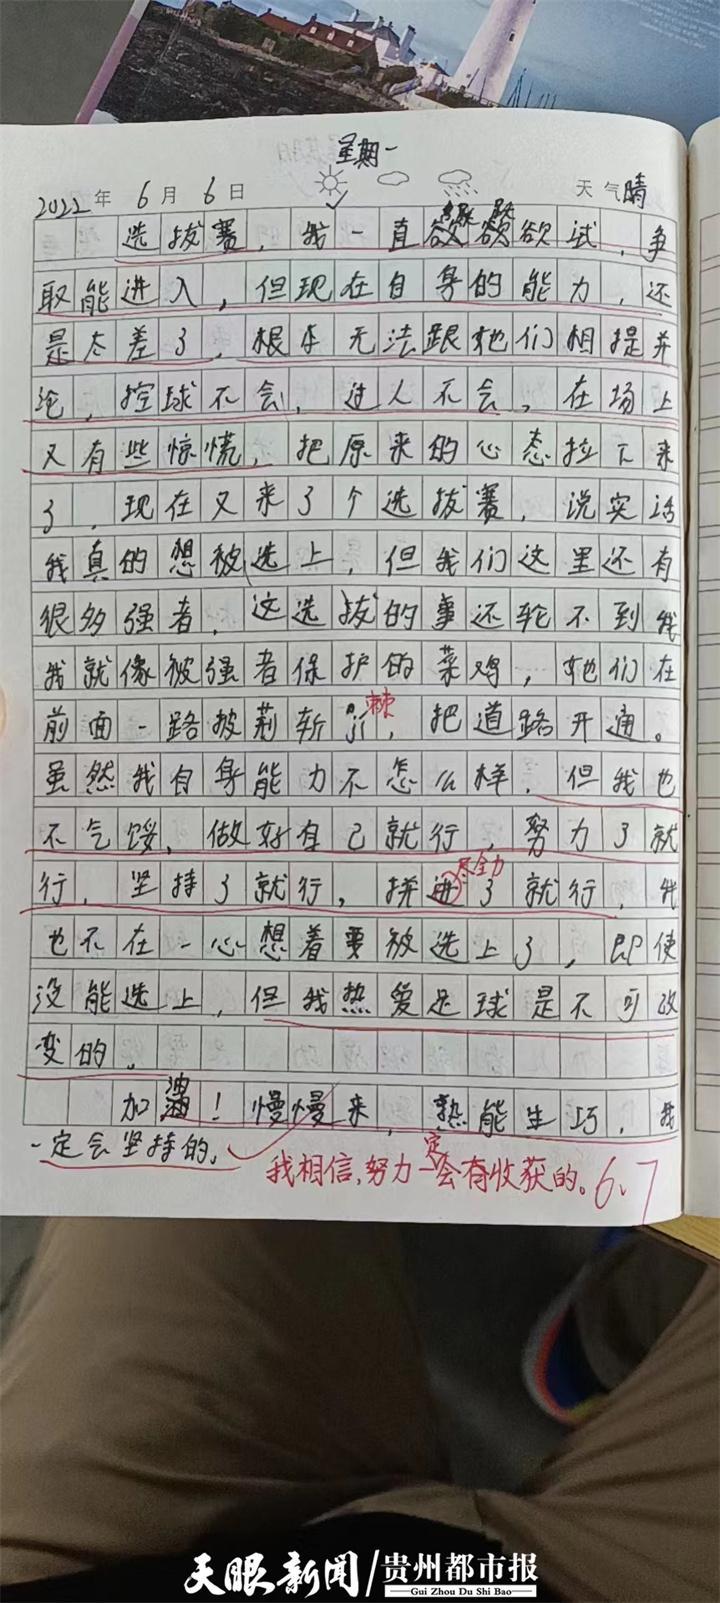 星期一
2022年 6月 6日 天气晴
选拔赛，我一直欲欲试，争
取能进入，但现在自身的能力，还
是太差了，根本无法跟他们相提并
论，控球不会，过人不会，在场上
又有些惊慌，把原来的心态拉下来
了，现在又来了个选拔赛，说实话
我真的想被选上，但我们这里还有
很多强者，这选拔的事还轮不到我
我就像被强者保护的菜鸡，他们在
前面一路披荆斩棘，把道路开通。
虽然我自身能力不怎么样，但我也
不气馁，做好自己就行，努力了就
尽全力
行，坚持了就行，拼进了就行，我
也不在一心想着要被选上了，即使
没能选上，但我热爱足球是不可改
变的，
加油！慢慢来，熟能生巧，我
一定会坚持的，
我相信，努力一定会有收获的。6、7
天眼新闻/贵州都市报
Gui Zhou Du Shi Bao